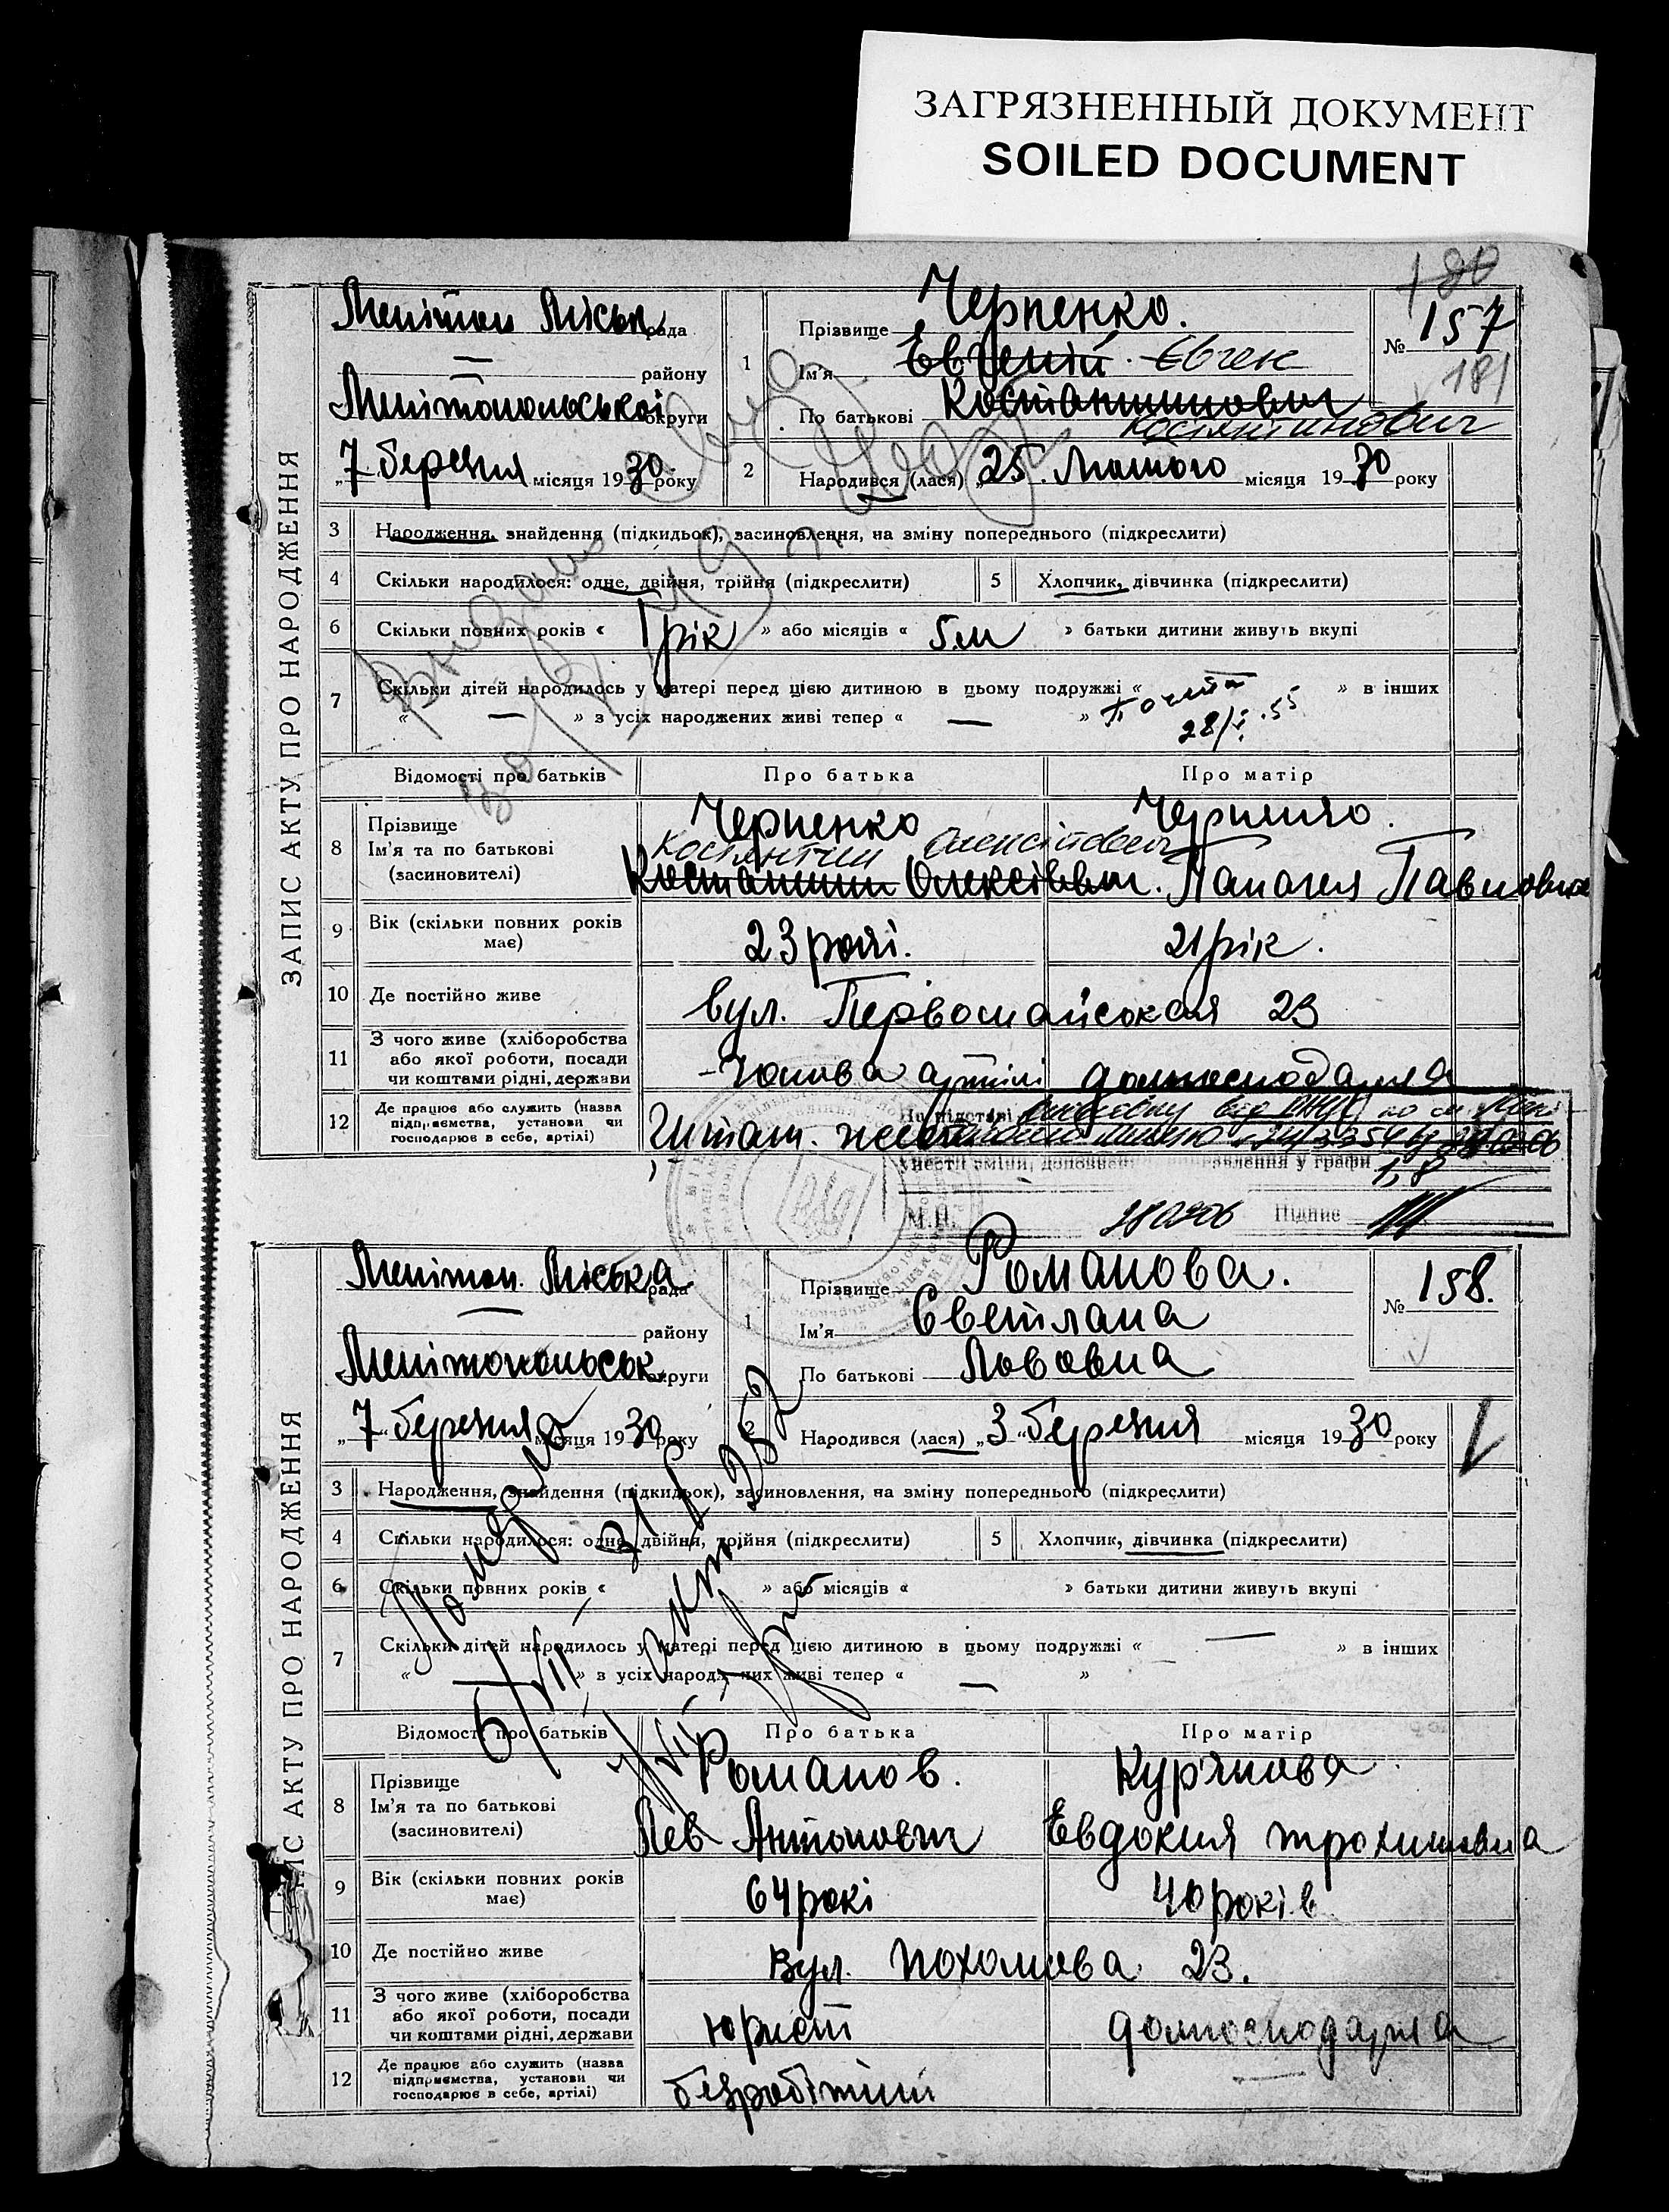 ЗАГРЯЗНЕННЫЙ ДОКУМЕНТ
SOILED DOCUMENT
180
ЗАПИС АКТУ ПРО НАРОДЖЕННЯ
Мелітоп Міськ рада
— району
Мелітопольської округи
„7 березня місяця 1930 року
1
Прізвище Черненко.
Ім'я Евгеній. Євген
По батькові Костантинович
Костянтинович
№ 157
181
2 Народився (лася) „25. Лютого місяця 1930 року
3 Народження, знайдення (підкидьок), засиновлення, на зміну попереднього (підкреслити)
4 Скільки народилося: одне, двійня, трійня (підкреслити) 5 Хлопчик, дівчинка (підкреслити)
6 Скільки повних років « 1 рік » або місяців « 5 м » батьки дитини живуть вкупі
7 Скільки дітей народилось у матері перед цією дитиною в цьому подружжі « — » в інших
« — » з усіх народжених живі тепер « — »
28/I.55
Відомості про батьків Про батька Про матір
8 Прізвище
Ім'я та по батькові
(засновителі)
Черненко
Костянтин Олексійович
Костантин Олексієвич. Павловна
9 Вік (скільки повних років має) 23 роки. 21 рік.
10 Де постійно живе вул. Первомайськая 23
11 З чого живе (хліборобства або якої роботи, посади чи коштами рідні, держави артілі домгосподарка
12 Де працює або служить (назва підприємства, установи чи господарює в себе, артілі)
На підставі
внести зміни, доповнення, виправлення у графи 1, 8
М.П. 280206 Підпис
ЗАПИС АКТУ ПРО НАРОДЖЕННЯ
Мелітоп. Міська рада
— району
Мелітопольськ округи
„7 березня місяця 1930 року
1
Прізвище Романова.
Ім'я Светлана
По батькові Львовна
№ 158.
2 Народився (лася) „3 березня місяця 1930 року
3 Народження, знайдення (підкидьок), засиновлення, на зміну попереднього (підкреслити)
4 Скільки народилося: одне, двійня, трійня (підкреслити) 5 Хлопчик, дівчинка (підкреслити)
6 Скільки повних років « » або місяців « » батьки дитини живуть вкупі
7 Скільки дітей народилось у матері перед цією дитиною в цьому подружжі « — » в інших
« » з усіх народжених живі тепер « — »
Відомості про батьків Про батька Про матір
8 Прізвище
Ім'я та по батькові
(засиновителі)
Романов. Кур'янова
Лев Антонович Евдокия Трохимовна
9 Вік (скільки повних років має) 64 рокі 40 років
10 Де постійно живе Вул. Похомова 23.
11 З чого живе (хліборобства або якої роботи, посади чи коштами рідні, держави юрист домгосподарка
12 Де працює або служить (назва підприємства, установи чи господарює в себе, артілі) безробітний —